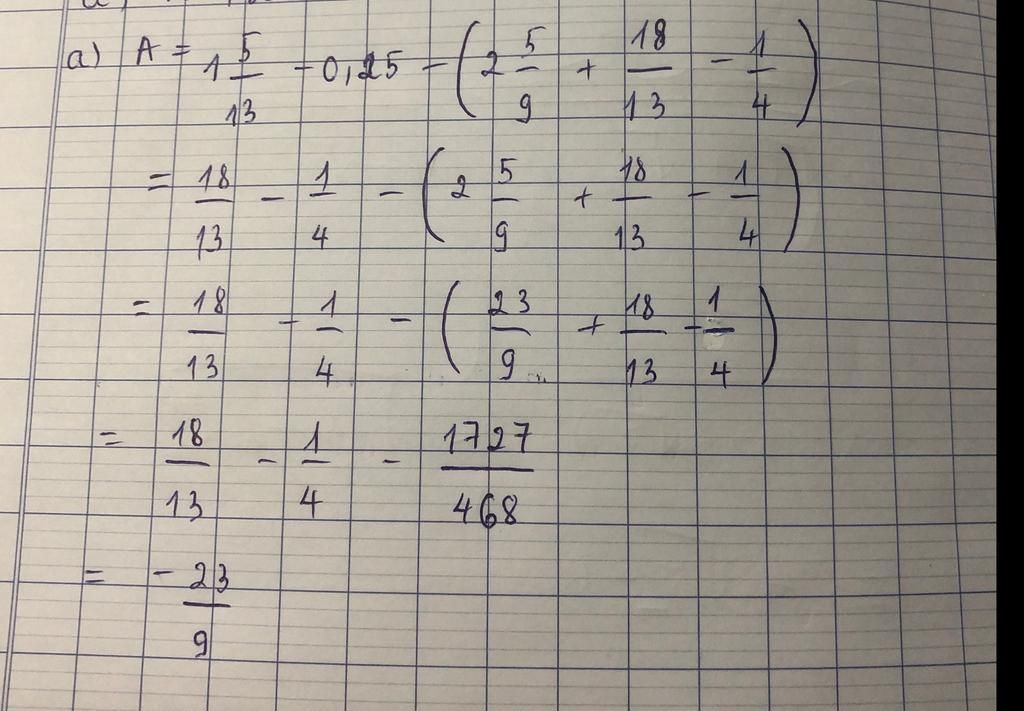 a) A = 1 5/13 - 0,25 - (2 5/9 + 18/13 - 1/4)
= 18/13 - 1/4 - (2 5/9 + 18/13 - 1/4)
= 18/13 - 1/4 - (23/9 + 18/13 - 1/4)
= 18/13 - 1/4 - 1727/468
= -23/9